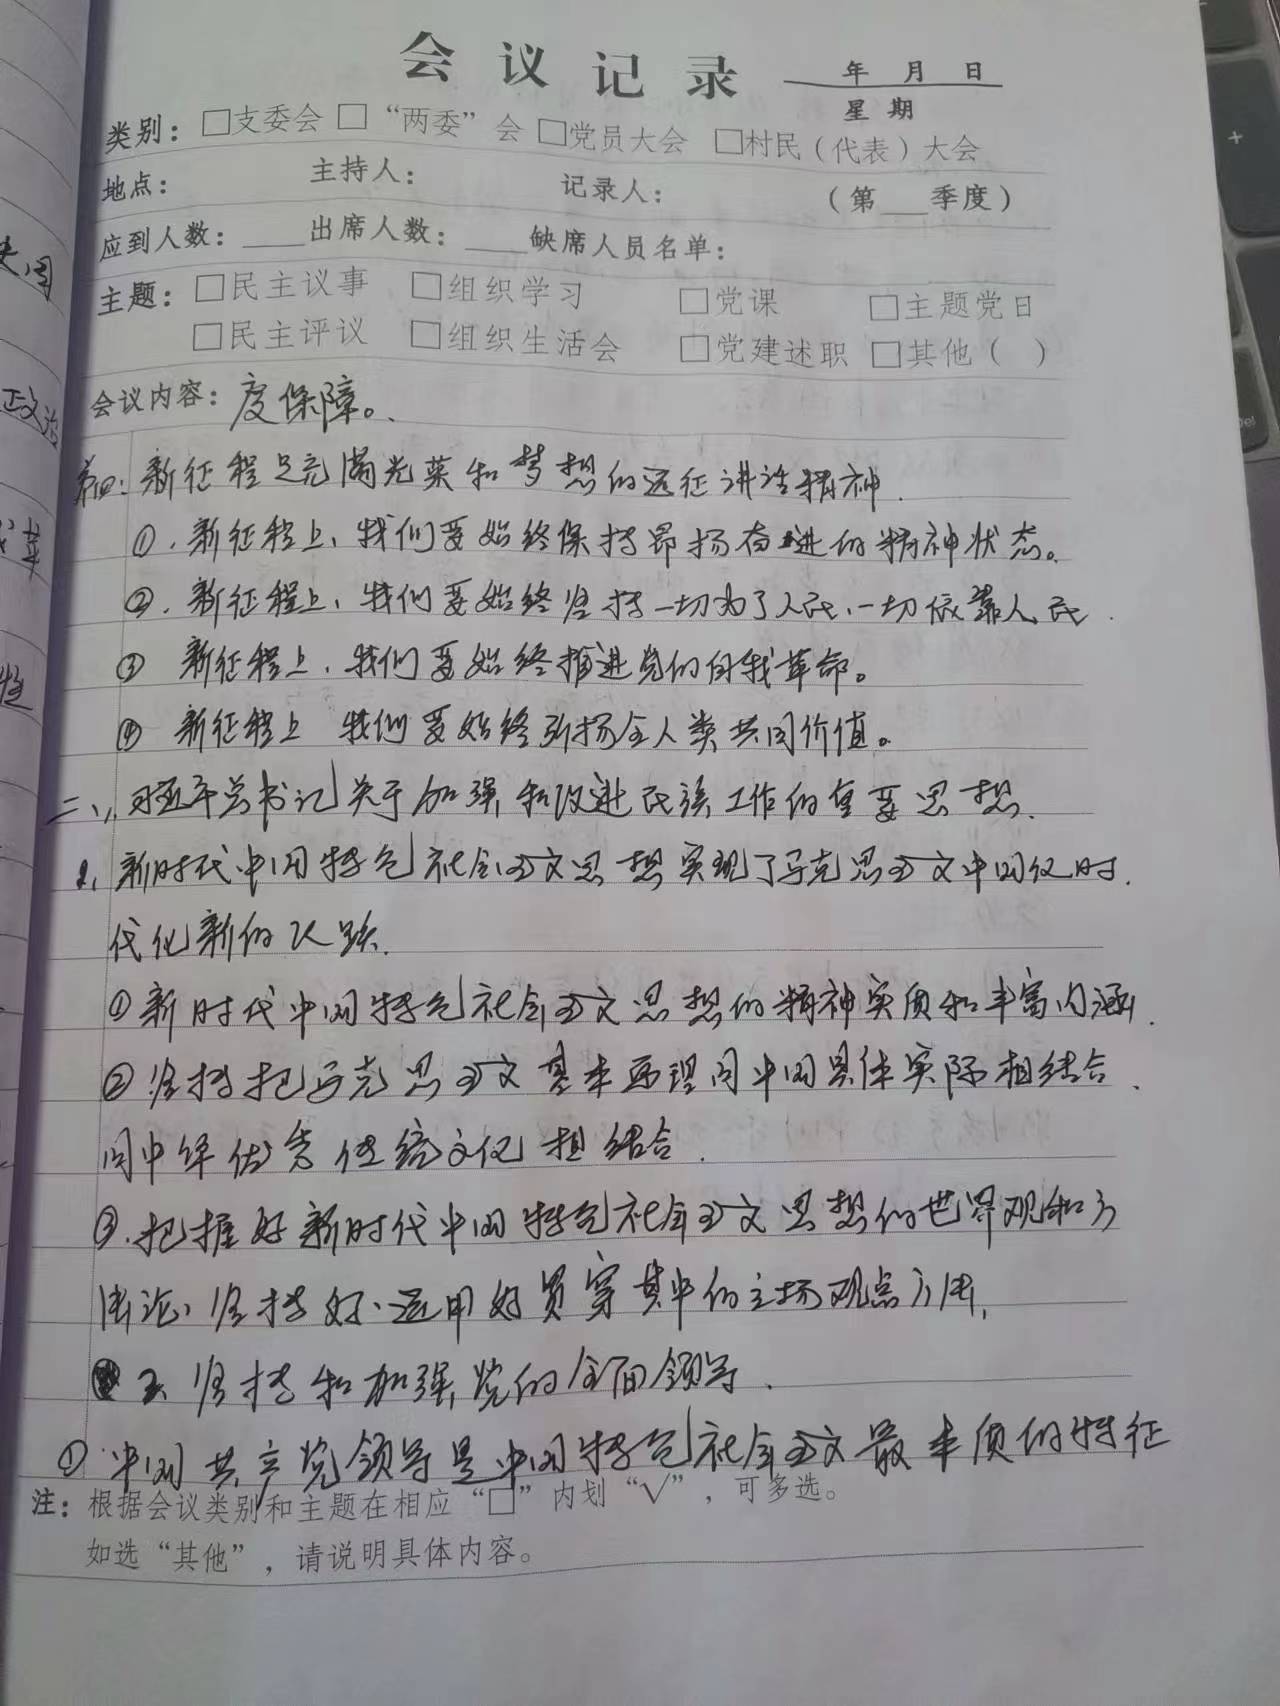 会议记录 年 月 日
星期
类别：□支委会 □“两委”会 □党员大会 □村民（代表）大会
地点： 主持人： 记录人： （第___季度）
应到人数：____出席人数：____缺席人员名单：
主题：□民主议事 □组织学习 □党课 □主题党日
□民主评议 □组织生活会 □党建述职 □其他（ ）
会议内容：度保障。
第四：新征程是充满光荣和梦想的远征讲话精神.
①.新征程上、我们要始终保持昂扬奋进的精神状态。
②.新征程上、我们要始终坚持一切为了人民、一切依靠人民.
③ 新征程上、我们要始终推进党的自我革命。
④ 新征程上 我们要始终弘扬全人类共同价值。
二、习近平总书记关于加强和改进民族工作的重要思想.
1、新时代中国特色社会主义思想实现了马克思主义中国化时
代化新的飞跃.
①新时代中国特色社会主义思想的精神实质和丰富内涵.
②坚持把马克思主义基本原理同中国具体实际相结合、
同中华优秀传统文化相结合.
③.把握好新时代中国特色社会主义思想的世界观和方
法论、坚持好、运用好贯穿其中的立场观点方法,
2、坚持和加强党的全面领导.
①.中国共产党领导是中国特色社会主义最本质的特征
注：根据会议类别和主题在相应“□”内划“√”，可多选。
如选“其他”，请说明具体内容。